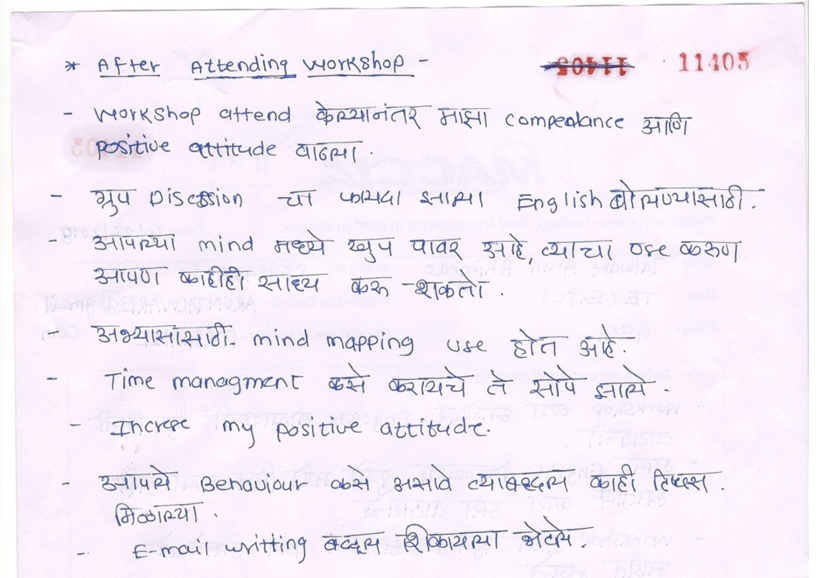 * After Attending workshop - 11405 11405
- workshop attend केल्यानंतर माझा compentance आणि
positive attitude वाढला.
- ग्रुप Discession चा फायदा झाला English बोलण्यासाठी.
- आपल्या mind मध्ये खुप पावर आहे, त्याचा use करुण
आपण काहीही साध्य करू शकतो.
- अभ्यासासाठी mind mapping use होत आहे.
- Time managment कसे करायचे ते सोपे झाले.
- Increse my positive attitude.
- आपले Behaviour कसे असावे त्याबद्दल काही टिप्स
मिळाल्या.
- E-mail writting बद्दल शिकायला भेटले.